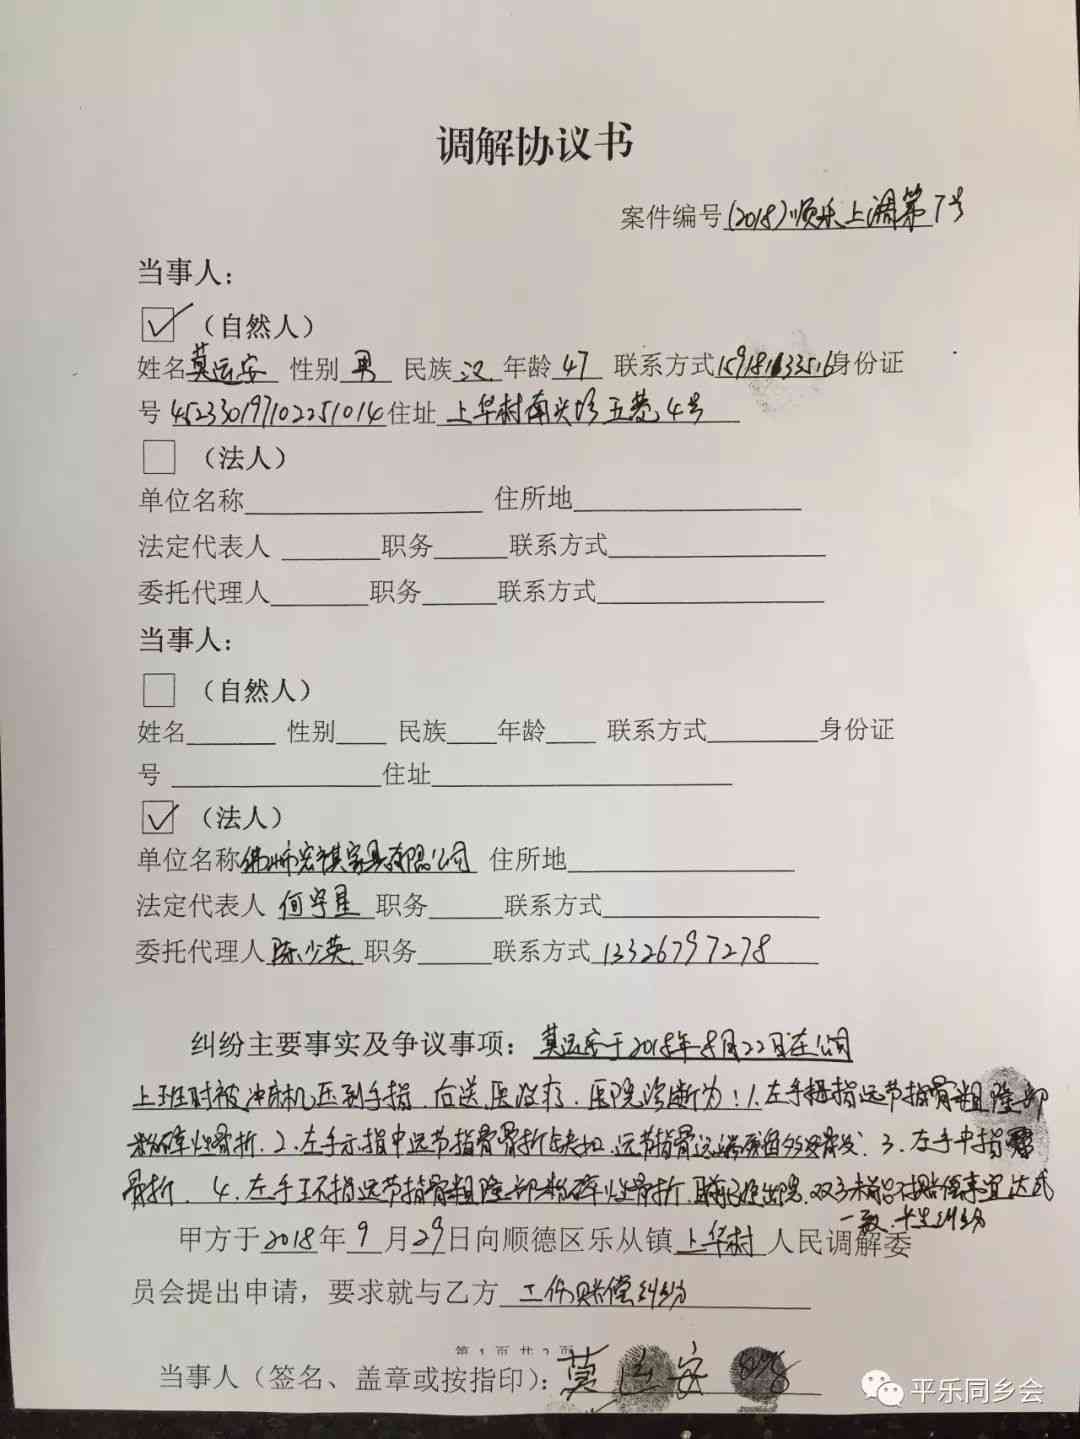 调解协议书
案件编号(2018)顺乐上调第7号
当事人：
（自然人）
姓名莫运安 性别男 民族汉 年龄47 联系方式15918133516身份证
号 452330197102251014住址 上华村南兴坊五巷4号
（法人）
单位名称 住所地
法定代表人 职务 联系方式
委托代理人 职务 联系方式
当事人：
（自然人）
姓名 性别 民族 年龄 联系方式 身份证
号 住址
（法人）
单位名称佛山市宏祺家具有限公司 住所地
法定代表人 何宇星 职务 联系方式
委托代理人陈少英 职务 联系方式 13326797278
纠纷主要事实及争议事项：莫运安于2018年8月22日在公司
上班时被冲床机压到手指，后送医治疗，医院诊断为：1.左手拇指远节指骨粗隆部
粉碎性骨折，2.左手示指中远节指骨骨折缺如，远节指骨远端残留。3.左手中指
骨折，4.左手环指远节指骨粗隆部粉碎性骨折，出院，双方未能就赔偿事宜达成
一致，产生纠纷
甲方于2018年9月29日向顺德区乐从镇上华村人民调解委
员会提出申请，要求就与乙方 工伤赔偿纠纷
第 1 页 共 2 页
当事人（签名、盖章或按指印）：莫运安
平乐同乡会